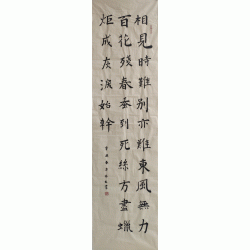 相見時難别亦難東風無力
百花殘春蚕到死絲方盡蠟
炬成灰淚始幹